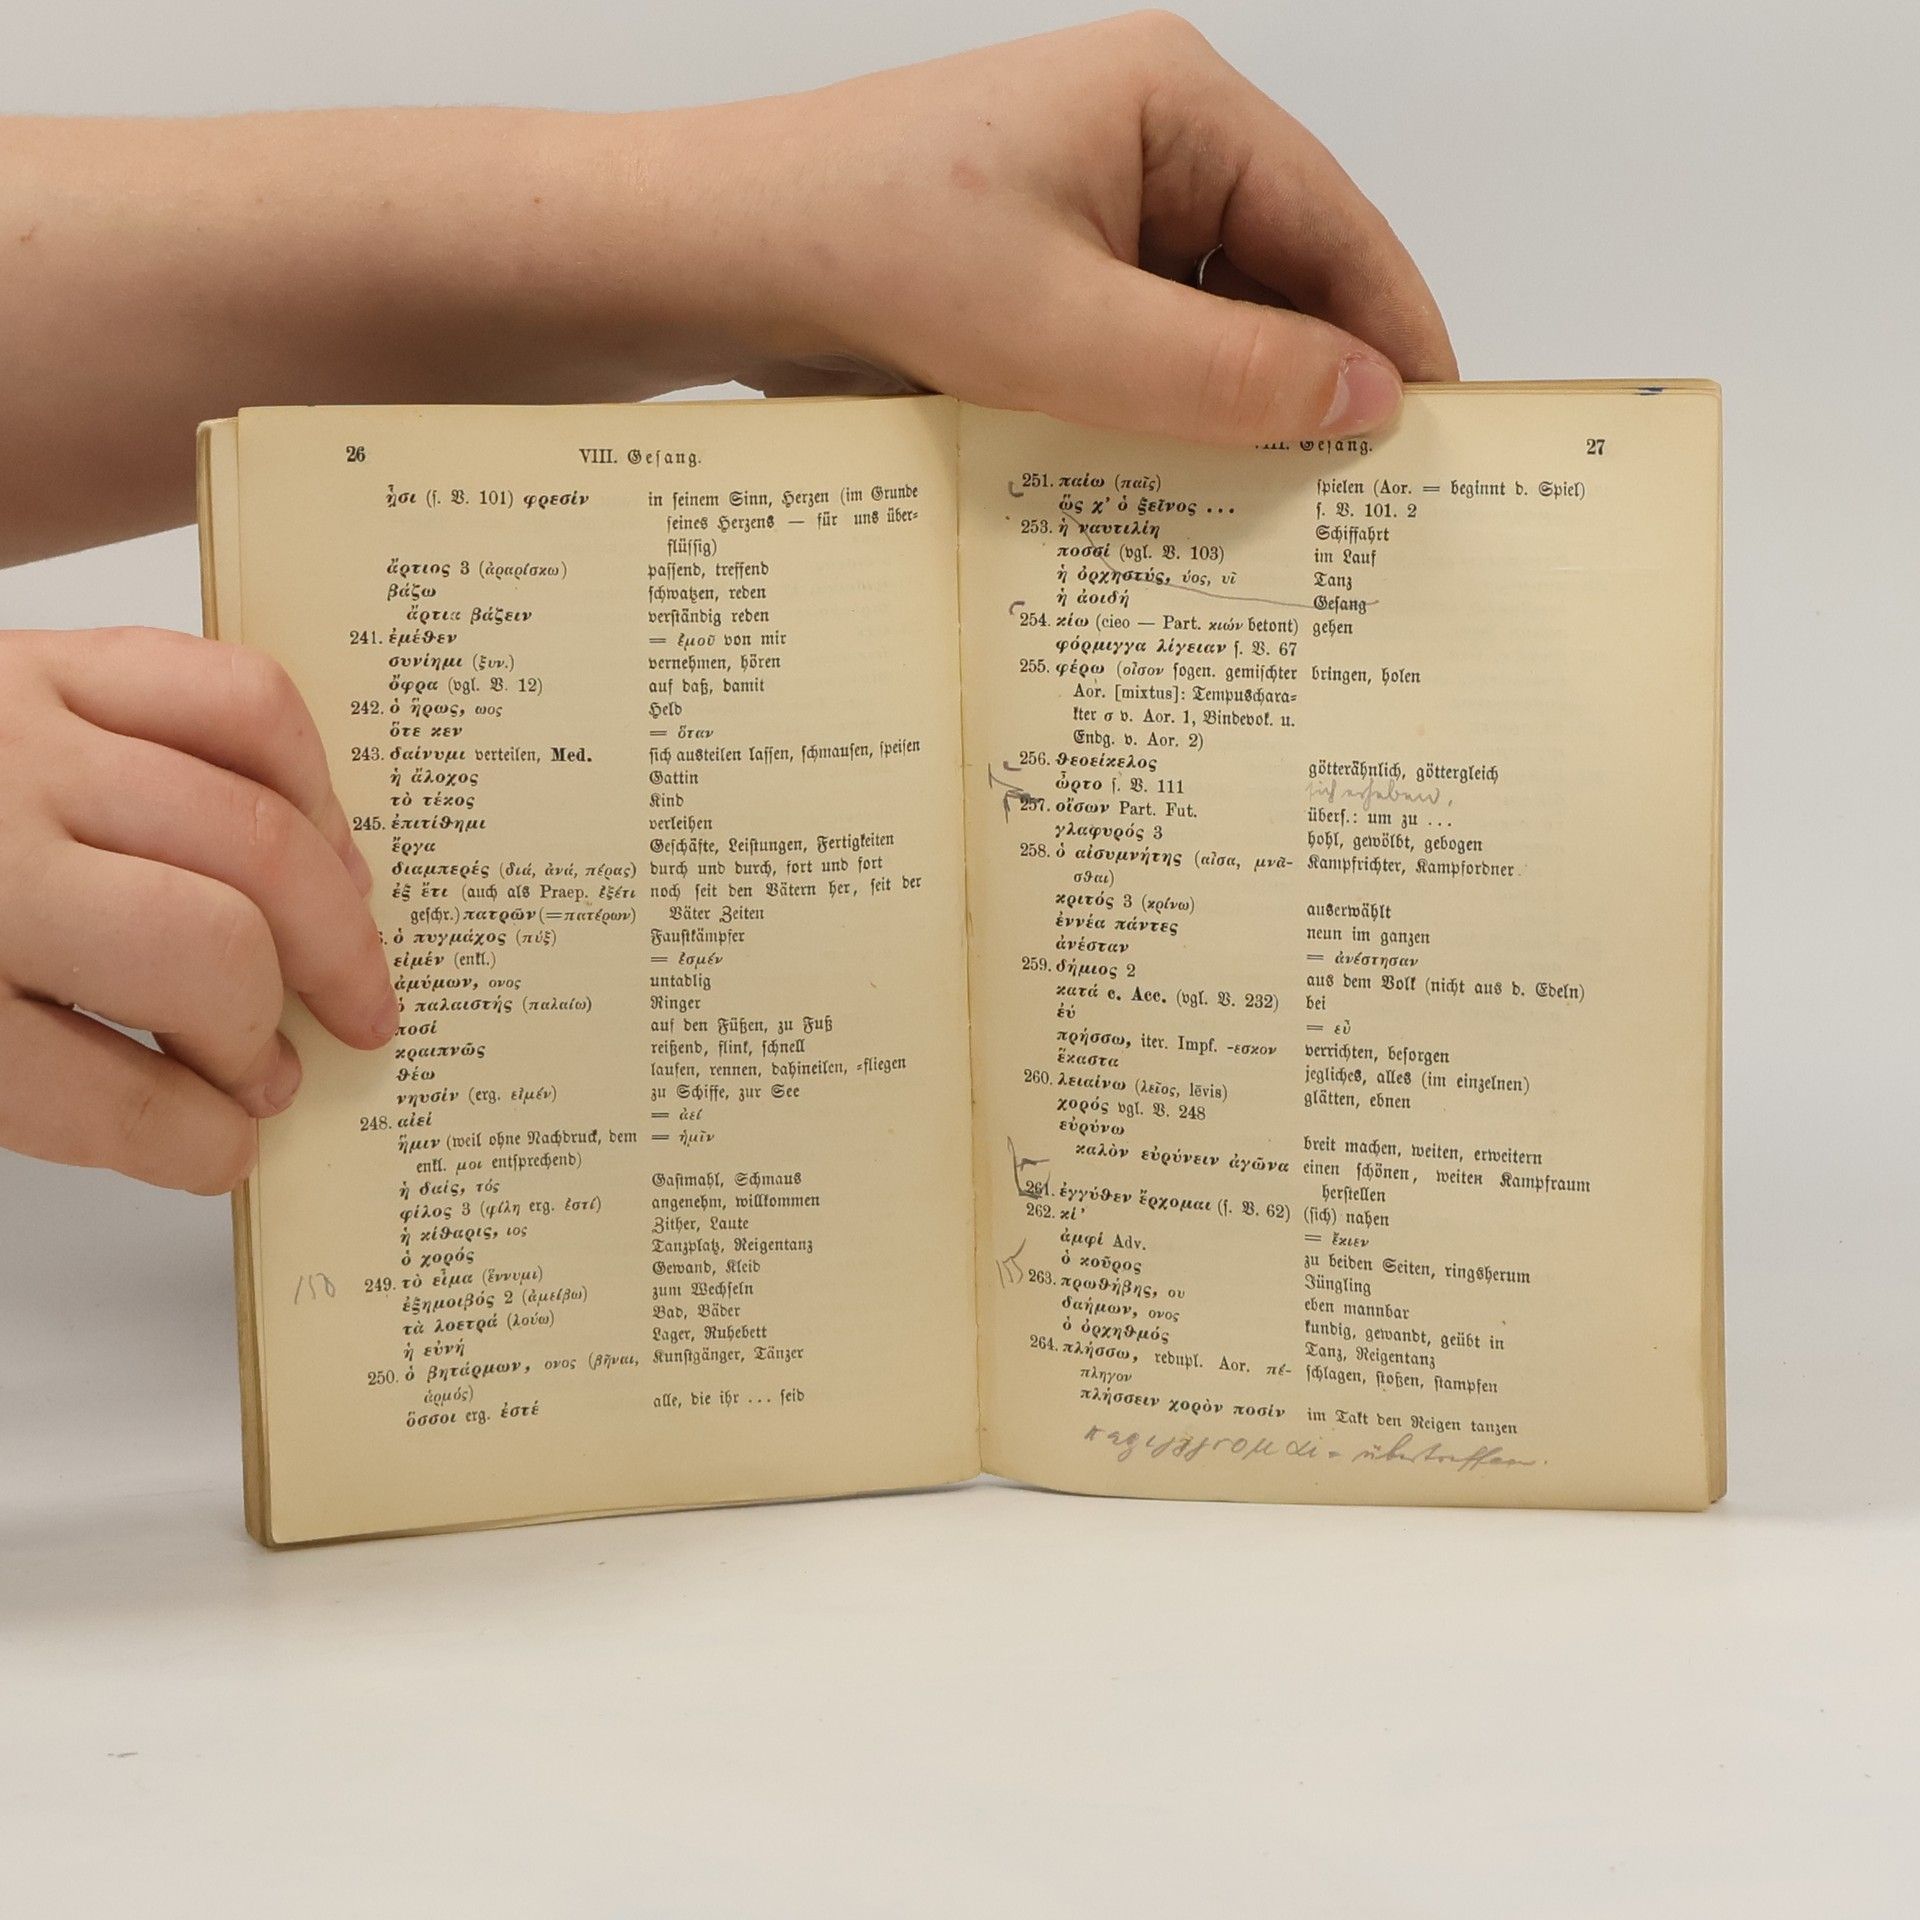 26
VIII. Geſang.
ᾗσι (ſ. V. 101) φρεσίν in ſeinem Sinn, Herzen (im Grunde
ſeines Herzens — für uns über-
flüſſig)
ἄρτιος 3 (ἀραρίσκω) paſſend, treffend
βάζω ſchwatzen, reden
ἄρτια βάζειν verſtändig reden
241. ἐμέθεν = ἐμοῦ von mir
συνίημι (ξυν.) vernehmen, hören
ὄφρα (vgl. V. 12) auf daß, damit
242. ὁ ἥρως, ωος Held
ὅτε κεν = ὅταν
243. δαίνυμι verteilen, Med. ſich austeilen laſſen, ſchmauſen, ſpeiſen
ἡ ἄλοχος Gattin
τὸ τέκος Kind
245. ἐπιτίθημι verleihen
ἔργα Geſchäfte, Leiſtungen, Fertigkeiten
διαμπερές (διά, ἀνά, πέρας) durch und durch, fort und fort
ἐξ ἔτι (auch als Praep. ἐξέτι noch ſeit den Vätern her, ſeit der
geſchr.) πατρῶν (=πατέρων) Väter Zeiten
ὁ πυγμάχος (πύξ) Fauſtkämpfer
εἰμέν (enkl.) = ἐσμέν
ἀμύμων, ονος untadlig
ὁ παλαιστής (παλαίω) Ringer
ποσί auf den Füßen, zu Fuß
κραιπνῶς reißend, flink, ſchnell
θέω laufen, rennen, dahineilen, -fliegen
νηυσίν (erg. εἰμέν) zu Schiffe, zur See
248. αἰεί = ἀεί
ἥμιν (weil ohne Nachdruck, dem = ἡμῖν
enkl. μοι entſprechend)
ἡ δαίς, τός Gaſtmahl, Schmaus
φίλος 3 (φίλη erg. ἐστί) angenehm, willkommen
ἡ κίθαρις, ιος Zither, Laute
ὁ χορός Tanzplatz, Reigentanz
249. τὸ εἷμα (ἕννυμι) Gewand, Kleid
ἐξημοιβός 2 (ἀμείβω) zum Wechſeln
τὰ λοετρά (λούω) Bad, Bäder
ἡ εὐνή Lager, Ruhebett
250. ὁ βητάρμων, ονος (βῆναι, Kunſtgänger, Tänzer
ἁρμός)
ὅσσοι erg. ἐστέ alle, die ihr ... ſeid
150
Geſang.
27
251. παίω (παῖς) ſpielen (Aor. = beginnt d. Spiel)
ὥς χ' ὁ ξεῖνος ... ſ. V. 101. 2
253. ἡ ναυτιλίη Schiffahrt
ποσσί (vgl. V. 103) im Lauf
ἡ ὀρχηστύς, ύος, υῖ Tanz
ἡ ἀοιδή Geſang
254. κίω (cieo — Part. κιών betont) gehen
φόρμιγγα λίγειαν ſ. V. 67
255. φέρω (οἶσον ſogen. gemiſchter bringen, holen
Aor. [mixtus]: Tempuschara-
kter σ v. Aor. 1, Bindevok. u.
Endg. v. Aor. 2)
256. θεοείκελος götterähnlich, göttergleich
ὦρτο ſ. V. 111 sich erheben,
257. οἴσων Part. Fut. überſ.: um zu ...
γλαφυρός 3 hohl, gewölbt, gebogen
258. ὁ αἰσυμνήτης (αἶσα, μνᾶ- Kampfrichter, Kampfordner
σθαι)
κριτός 3 (κρίνω) auserwählt
ἐννέα πάντες neun im ganzen
ἀνέσταν = ἀνέστησαν
259. δήμιος 2 aus dem Volk (nicht aus d. Edeln)
κατά c. Acc. (vgl. V. 232) bei
ἐύ = εὖ
πρήσσω, iter. Impf. -εσκον verrichten, beſorgen
ἕκαστα jegliches, alles (im einzelnen)
260. λειαίνω (λεῖος, lēvis) glätten, ebnen
χορός vgl. V. 248
εὐρύνω breit machen, weiten, erweitern
καλὸν εὐρύνειν ἀγῶνα einen ſchönen, weiten Kampfraum
herſtellen
261. ἐγγύθεν ἔρχομαι (ſ. V. 62) (ſich) nahen
262. κί' = ἔκιεν
ἀμφί Adv. zu beiden Seiten, ringsherum
ὁ κοῦρος Jüngling
263. πρωθήβης, ου eben mannbar
δαήμων, ονος kundig, gewandt, geübt in
ὁ ὀρχηθμός Tanz, Reigentanz
264. πλήσσω, redupl. Aor. πέ- ſchlagen, ſtoßen, ſtampfen
πληγον
πλήσσειν χορὸν ποσίν im Takt den Reigen tanzen
155
= übertreffen.